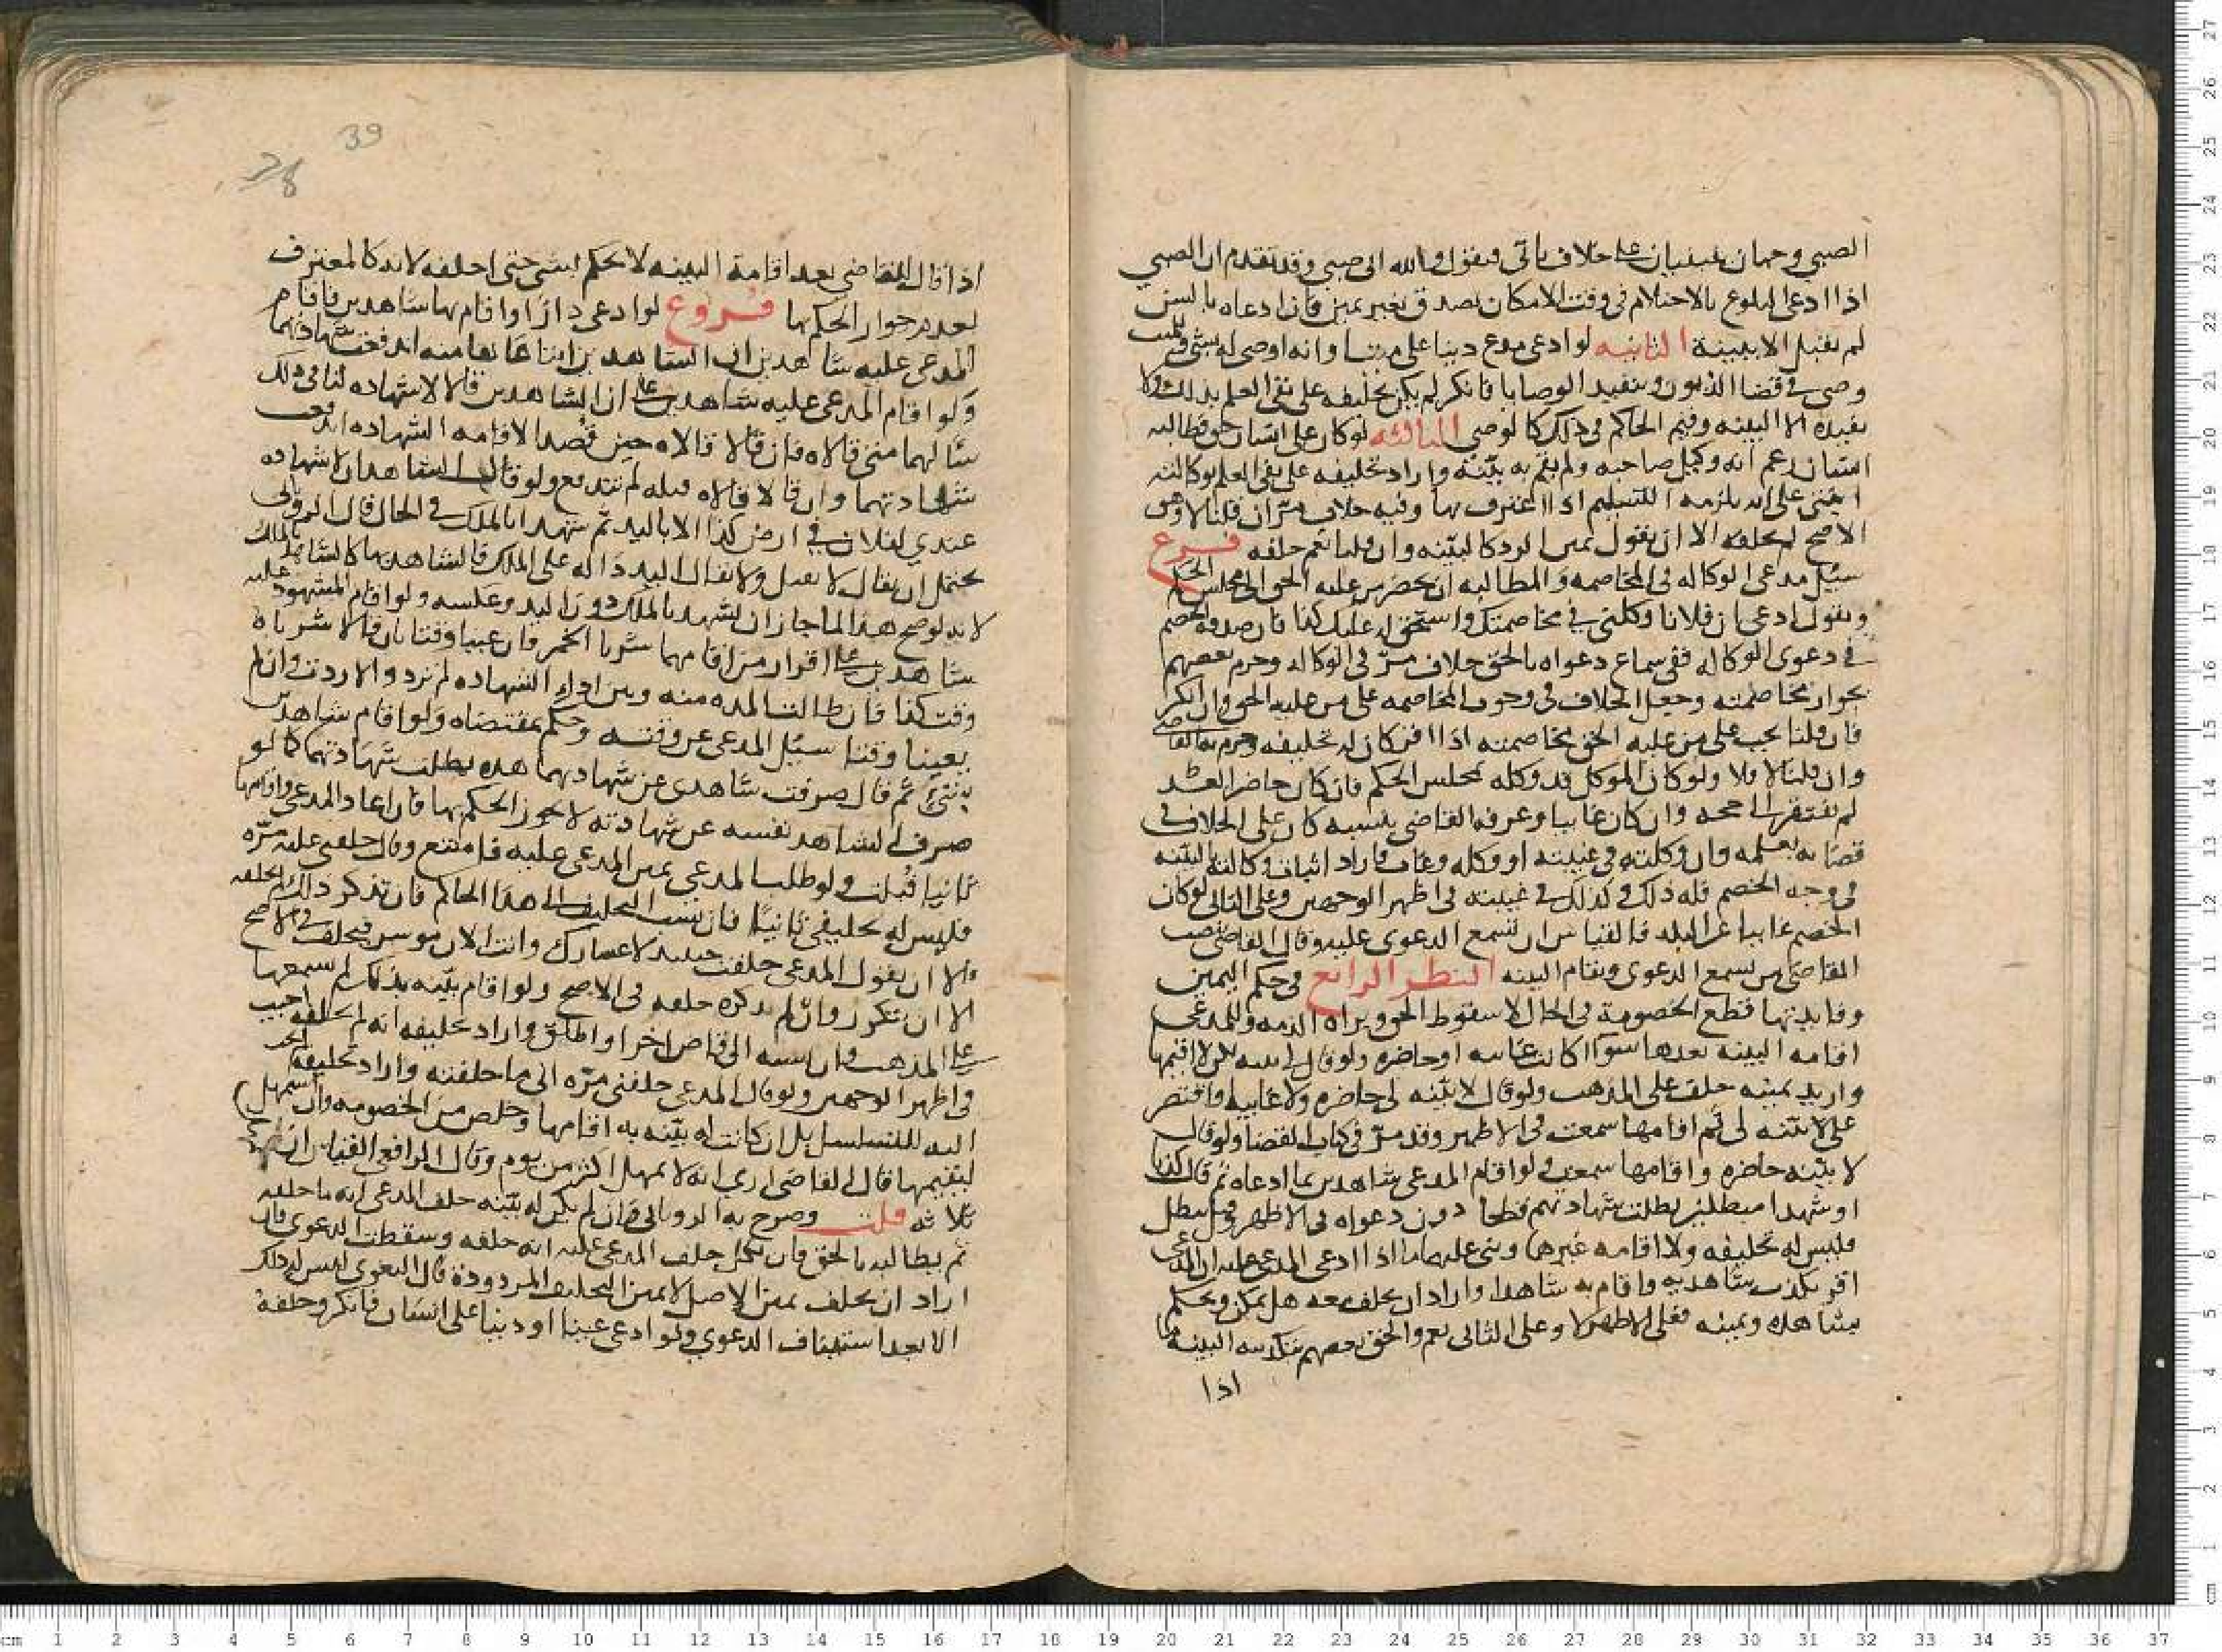 الصبي وجهان مبنيان على خلاف ياتى ويقول والله انى صبي وقد تقدم ان الصبي
اذا ادعى البلوغ بالاحتلام فى وقت الامكان يصدق بغير يمين فان ادعاه بالسن
لم يقبل الا ببينة الثانيه لو ادعى مدع دينا على ميت او انه اوصى له بشى وللميت
وصى فى قضا الديون وتنفيد الوصايا فانكر لم يكن تحليفه على نفى العلم بذلك ولا
يفيده الا البينه وقيم الحاكم فى ذلك كالوصي الثالثه لو كان على انسان حق فطالبه
انسان زعم انه وكيل صاحبه ولم يقم به بينة واراد تحليفه على نفى العلم بوكالته
انبنى على انه يلزمه التسليم اذا اعترف بها وفيه خلاف مرّ ان قلنا لا وهو
الاصح لم يحلفه الا ان نقول يمين الرد كالبينه وان قلنا نعم حلفه فرع
سبيل مدعى الوكاله فى المخاصمه والمطالبه ان يحضر من عليه الحق الى مجلس الحكم
ويقول ادعى ان فلانا وكلنى فى مخاصمتك واستحق له عليك كذا فان صدقه الخصم
فى دعوى الوكاله ففى سماع دعواه بالحق خلاف مرّ فى الوكاله وجزم بعضهم
بجواز مخاصمته وجعل الخلاف فى وجوب المخاصمه على من عليه الحق وان انكر
فان قلنا يجب على من عليه الحق مخاصمته اذا اقر كان له تحليفه وجزم به القاضى
وان قلنا لا فلا ولو كان الموكل قد وكله بمجلس الحكم فان كان حاضرا بعد
لم يفتقر الى حجه وان كان غايبا وعرفه القاضى بنسبه كان على الخلاف فى
قضايه بعلمه وان وكلته فى غيبته او وكله وغاب واراد اثبات وكالته بالبينه
فى وجه الخصم فله ذلك وكذلك فى غيبته فى اظهر الوجهين وعلى الثانى لو كان
الخصم غايبا عن البلد فالقياس ان تسمع الدعوى عليه وقال القاضى ينصب
القاضى من يسمع الدعوى ويقام البينه النظر الرابع فى حكم اليمين
وفايدتها قطع الخصومة فى الحال لا سقوط الحق وبراة الذمه وللمدعى
اقامه البينه بعدها سوا كانت غايبه او حاضره ولو قال لى بينه لكن لا اقيمها
واريد يمينه حلف على المذهب ولو قال لا بينه لى حاضره ولا غايبه واقتصر
على لا بينه لى ثم اقامها سمعت فى الاظهر وقد مرّ فى كتاب القضا ولو قال
لا بينه حاضره واقامها سمعت ولو اقام المدعى شاهدين بما ادعاه ثم قال كذبا
او شهدا مبطلين بطلت شهادتهم قطعا دون دعواه فى الاظهر وقيل تبطل
فليس له تحليفه ولا اقامه غيرها وبنى عليهما اذا ادعى المدعى عليه ان المدعى
اقر بكذب شاهديه واقام به شاهدا واراد ان يحلف معه هل يمكن ويحكم
بشاهده ويمينه فعلى الاظهر لا وعلى الثانى نعم والحق بعضهم بتكذيبه البينه ما
اذا
اذا قال للقاضى بعد اقامة البينه لا تحكم بشى حتى احلفه لانه كالمعترف
بعدم جواز الحكم بها فروع لو ادعى دارا واقام بها شاهدين فاقام
المدعى عليه شاهدين ان الشاهدين ابتاعاها منه اندفعت شهادتهما
ولو اقام المدعى عليه شاهدين على ان الشاهدين قالا لا شهاده لنا فى ذلك
سالهما متى قالاه فان قالا قالاه حين قصدا لاقامه الشهاده اندفعت
شهادتهما وان قالا قالاه قبله لم تندفع ولو قال الشاهدان لا شهاده
عندي لفلان فى ارض كذا الا باليد ثم شهدا بالملك فى الحال قال الهروي
يحتمل ان يقال لا يقبل ولا يقال اليد داله على الملك فالشاهد بها كالشاهد بالملك
لانه لو صح هذا لما جاز ان يشهد بالملك دون اليد وعكسه ولو اقام المشهود عليه
شاهدين على اقرار من اقامهما شربا الخمر فان عينا وقتا بان قالا شرباه
وقت كذا فان طالت المده منه وبين اداء الشهاده لم ترد والا ردت وان لم
يعينا وقتا سيل المدعى عن وقته وحكم بمقتضاه ولو اقام شاهدين
بشى ثم قال صرفت شاهدى عن شهادتهما هذه بطلت شهادتهما كما لو
صرف الشاهد نفسه عن شهادته لا يجوز الحكم بها فان اعاد المدعى واقامها
ثانيا قبلت ولو طلب المدعى يمين المدعى عليه فامتنع وقال حلفنى عليه مرّه
فليس له تحليفى ثانيا فان نسب التحليف الى هذا الحاكم فان تذكر ذلك لم يحلفه
الا ان يقول المدعى حلفت حينيد لاعسارك وانت الان موسر فيحلف فى الاصح
الا ان يتكرر وان لم يذكره حلفه فى الاصح ولو اقام بينه بذلك لم يسمعها
على المذهب وان نسبه الى قاض اخر او اطلق واراد تحليفه انه لم يحلفه اجيب
فى اظهر الوجهين ولو قال المدعى حلفنى مرّه انى ما حلفته واراد تحليفه لم يجب
اليه للتسلسل بل ان كانت له بينه به اقامها وخلص من الخصومه وان استمهل
ليقيمها قال القاضى ارى انه لا يمهل اكثر من يوم وقال الرافعى القياس ان يمهل
ثلاثه قلت وصرح به الرويانى فان لم يكن له بينه حلف المدعى انه ما حلفه
ثم يطالبه بالحق فان نكل حلف المدعى عليه انه حلفه وسقطت الدعوى فان
اراد ان يحلف يمين الاصل لا يمين التحليف المردودة قال البغوى ليس له ذلك
الا بعد استيناف الدعوي ولو ادعى عينا او دينا على انسان فانكر وحلفه